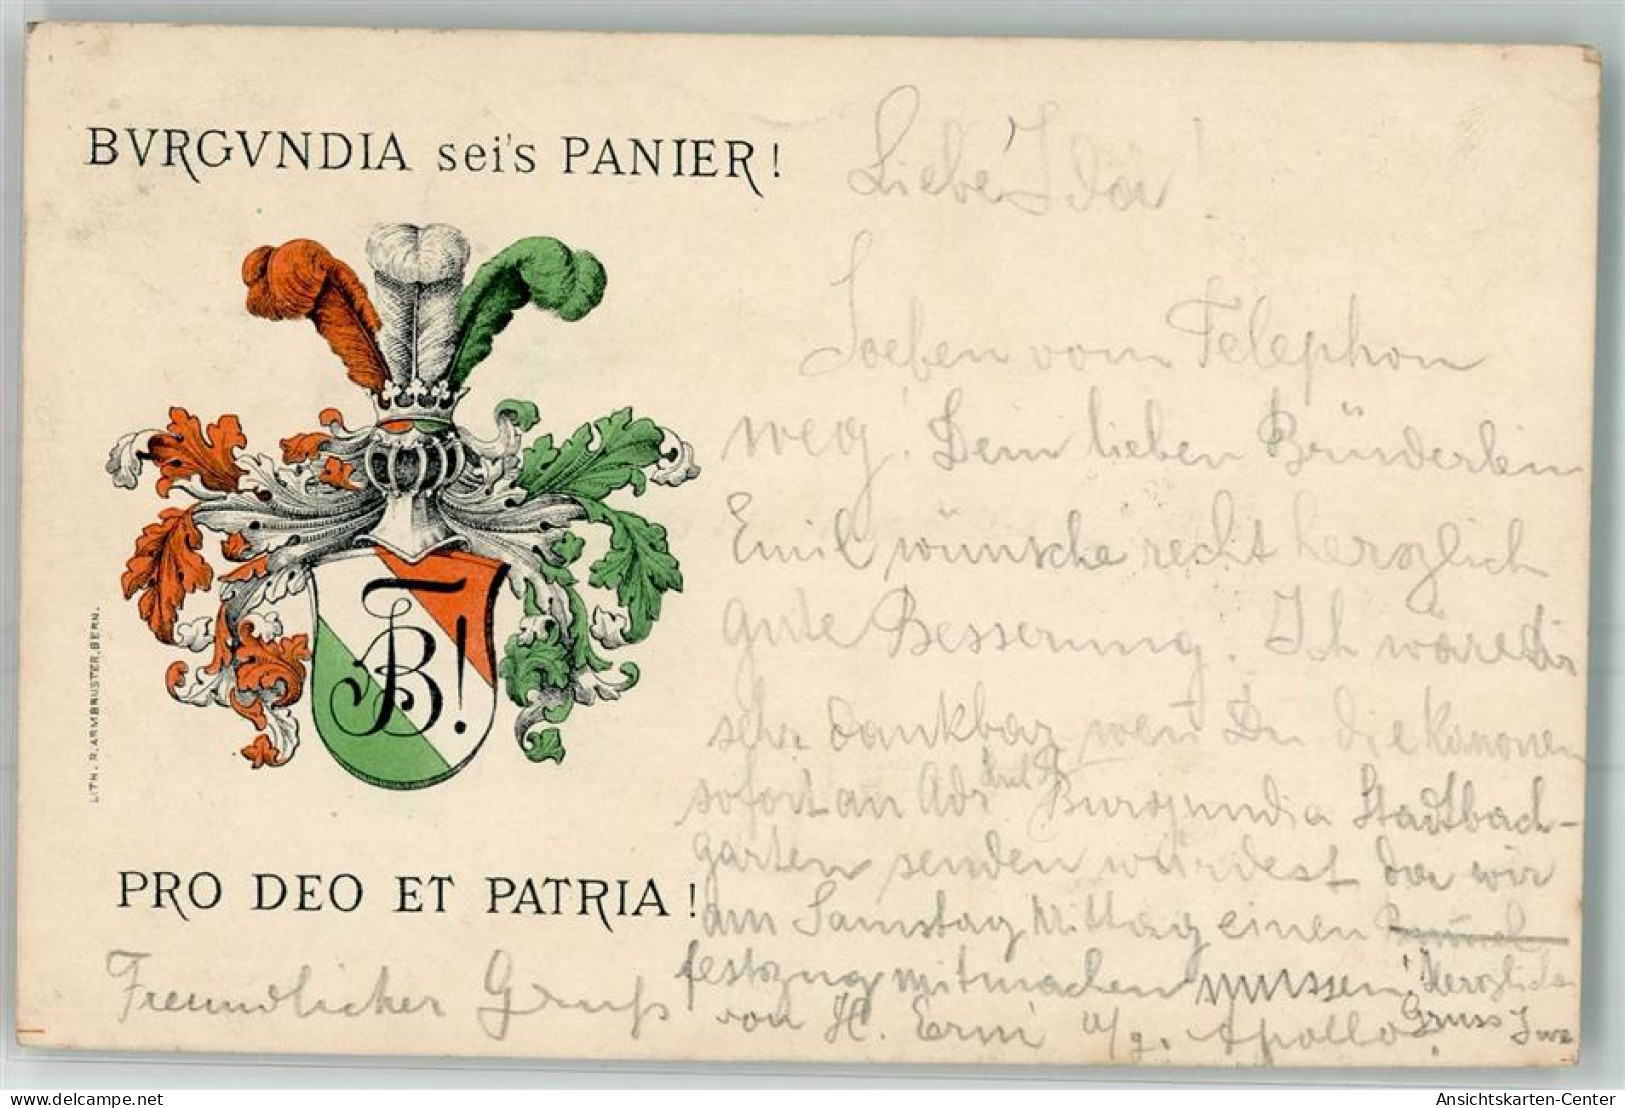 BVRGVNDIA sei's PANIER!
B!
LITH. R. ARMBRUSTER, BERN.
PRO DEO ET PATRIA!
Liebe Ida!
Soeben vom Telephon
weg! Dem lieben Brüderlein
Emil wünsche recht herzlich
gute Besserung. Ich wäre dir
sehr dankbar wen̄ Du die Kanonen
sofort an Burgundia Stadtbach-
garten senden würdest da wir
am Samstag Mittag einen
festzug mitmachen müssen! Herzliche
Gruss
von H. Erni v/g. Apollo.
Freundlicher Gruß
delcampe.net
Ansichtskarten-Center